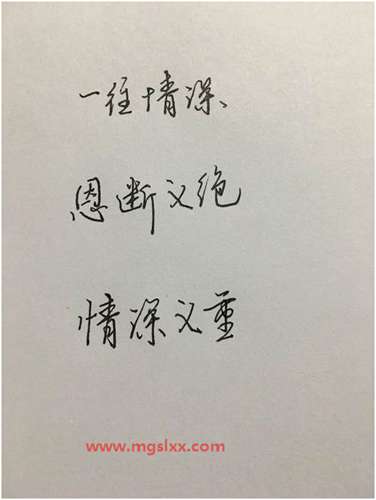 一往情深
恩断义绝
情深义重
www.mgslxx.com